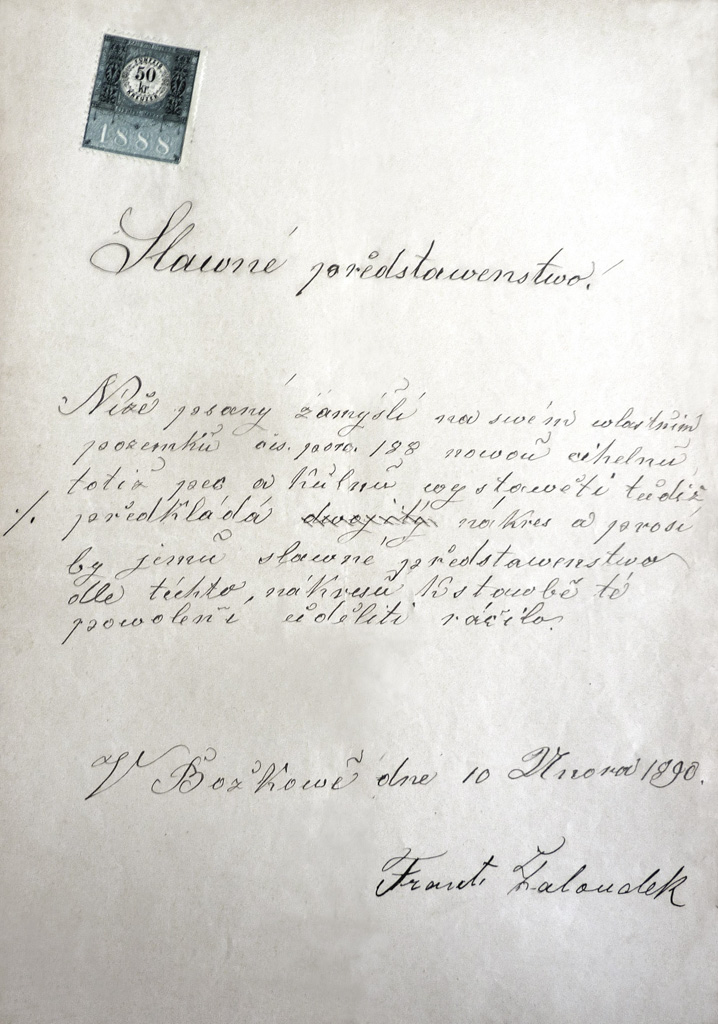 50
kr
1888
Slawné předstawenstwo!
Níže psaný zamýšlí na swém wlastním
pozemků čis. parc. 188 nowoů cihelnů,
totiž pec a kůlnů wystawěti tůdiž
⁒ předkládá dwojitý nákres a prosí
by jemů slawné předstawenstwo
dle těchto nákresů k stawbě té
powolení ůděliti ráčilo.
V Božkowě dne 10 Února 1890.
Frant. Žaloudek